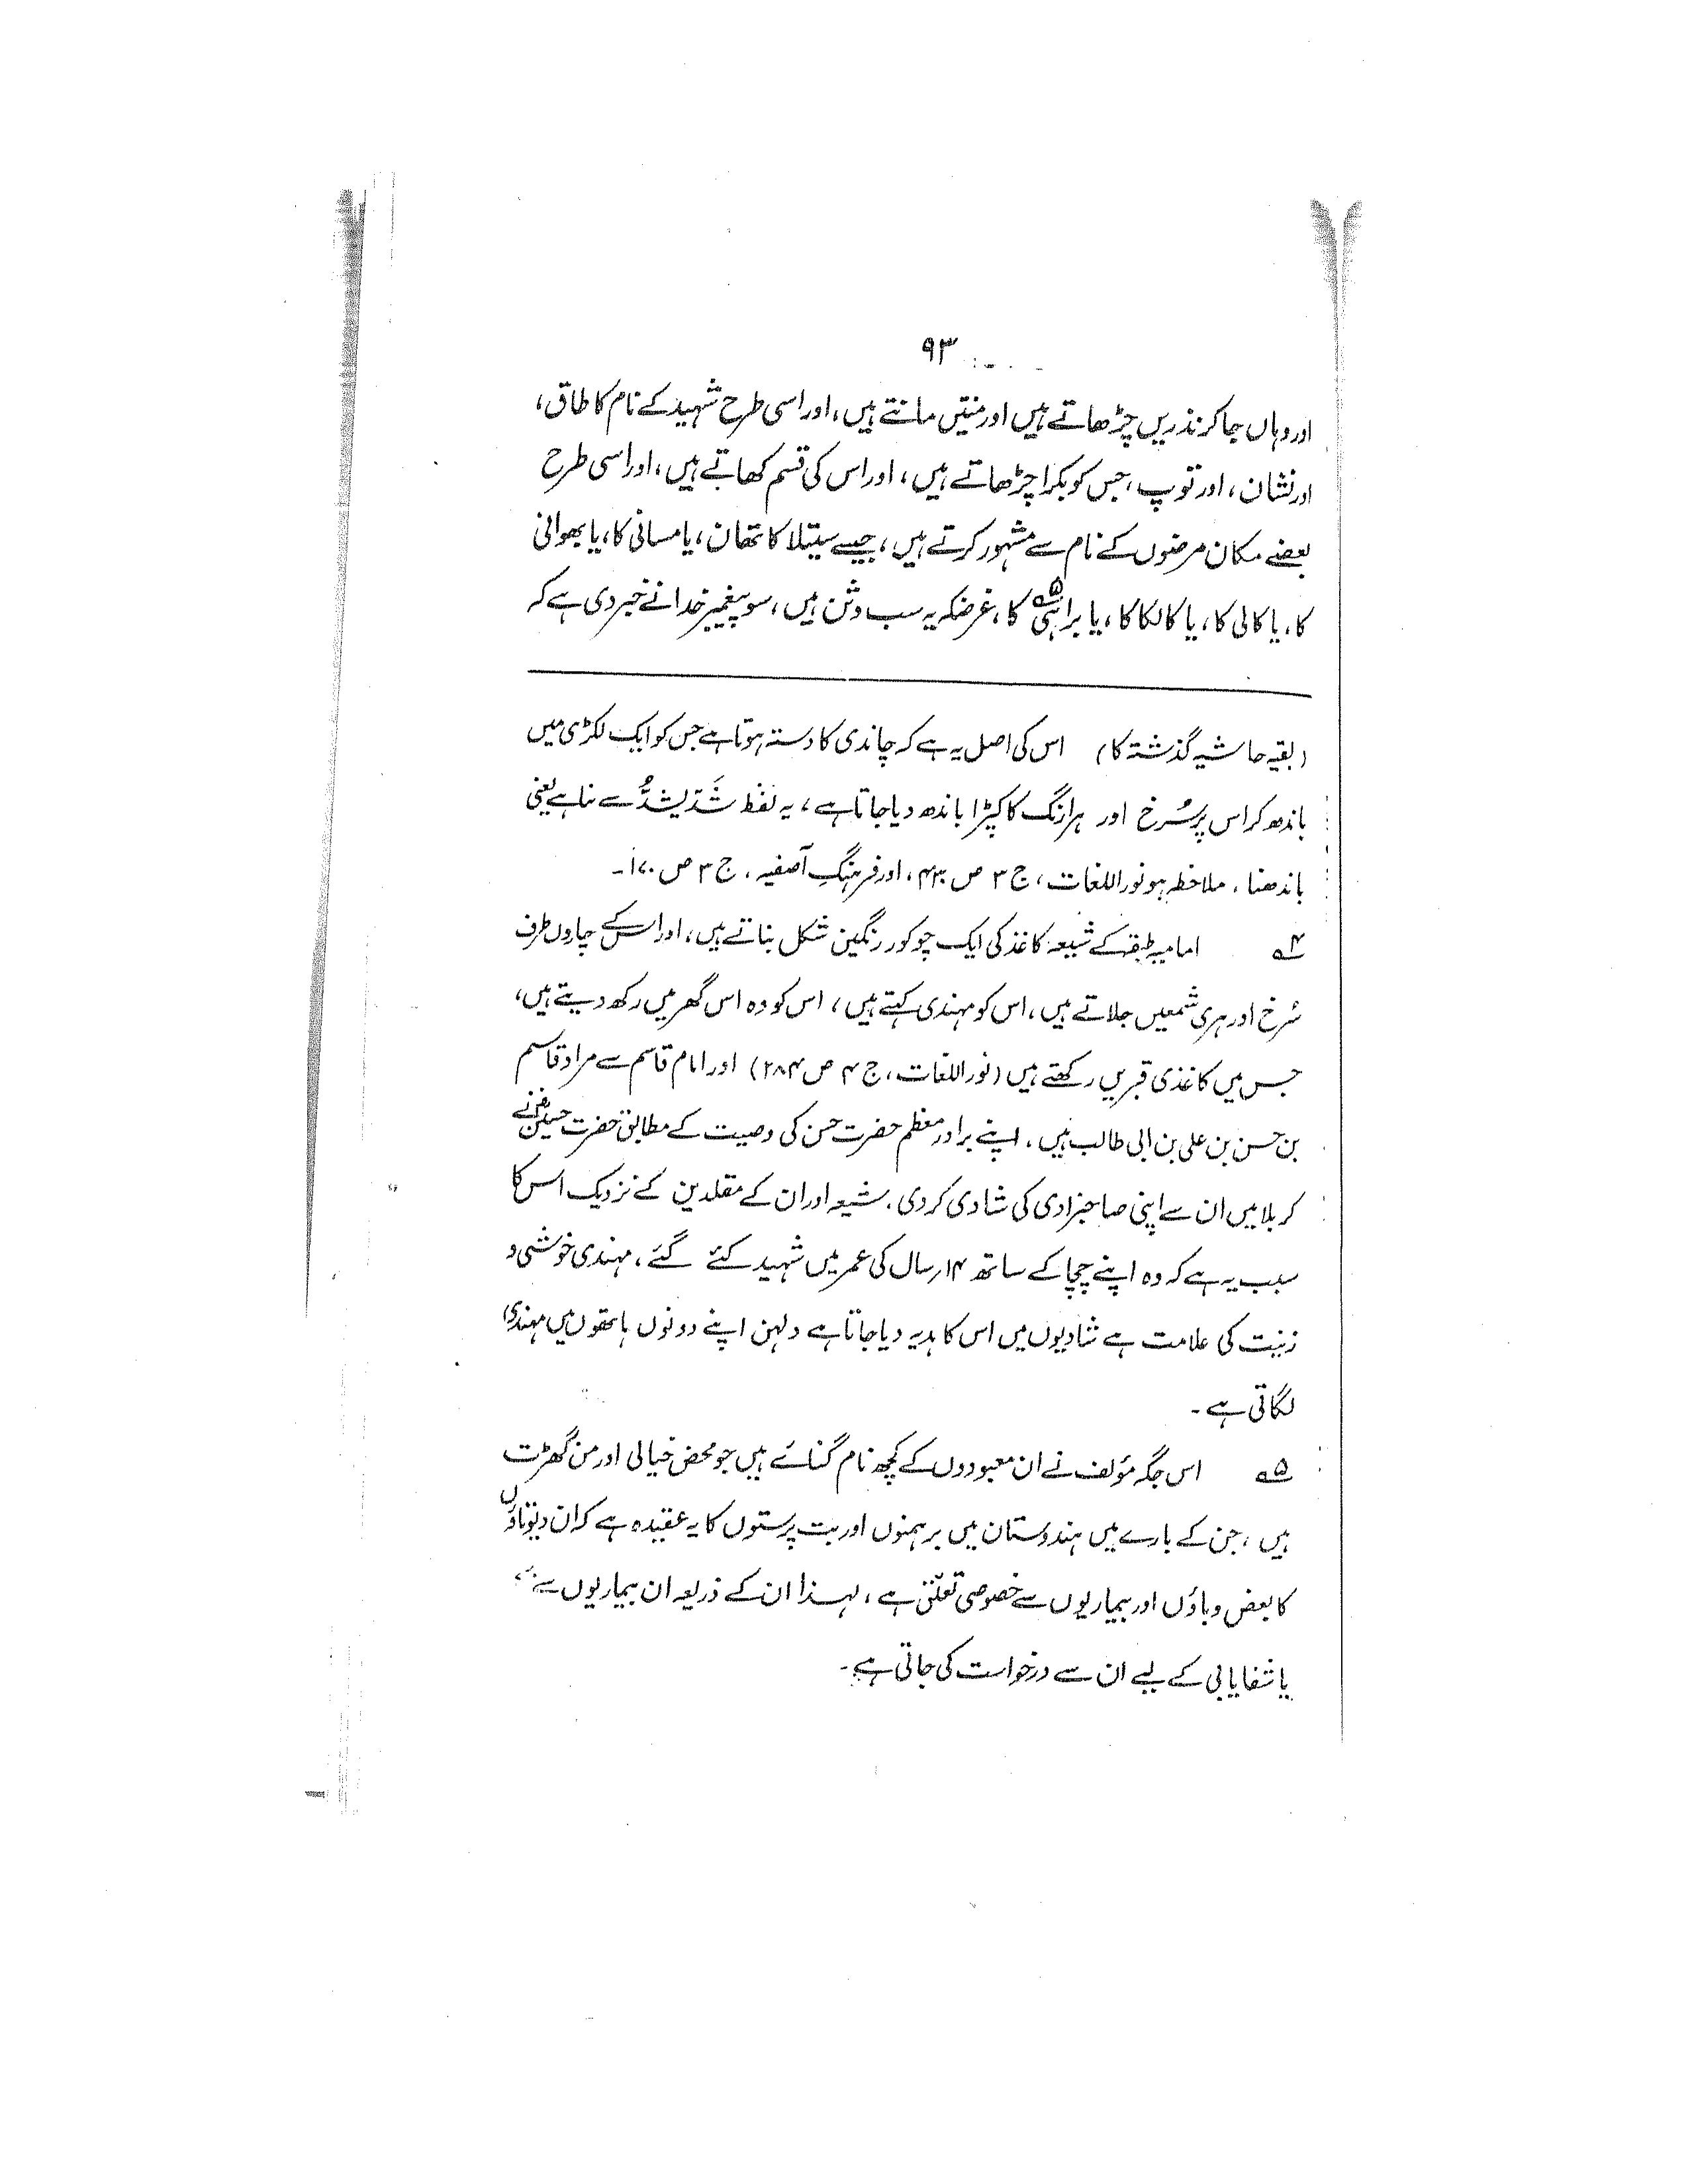 ۹۳
اور وہاں جا کر نذریں چڑھاتے ہیں اور منتیں مانتے ہیں، اور اسی طرح شہید کے نام کا طاق،
اور نشان، اور توپ، جس کو بکرا چڑھاتے ہیں، اور اس کی قسم کھاتے ہیں، اور اسی طرح
بعضے مکان مرضوں کے نام سے مشہور کرتے ہیں، جیسے سیتلا کا تھان، یا مسانی کا، یا بھوانی
کا، یا کالی کا، یا کالکا کا، یا براہی ۵ کا، غرضکہ یہ سب وثن ہیں، سو پیغمبر خدا نے خبر دی ہے کہ
(بقیہ حاشیہ گذشتہ کا) اس کی اصل یہ ہے کہ چاندی کا دستہ ہوتا ہے جس کو ایک لکڑی میں
باندھ کر اس پر سُرخ اور ہرا رنگ کا کپڑا باندھ دیا جاتا ہے، یہ لفظ شَدَّ یشدُّ سے بنا ہے یعنی
باندھنا، ملاحظہ ہو نور اللغات، ج ۳ ص ۴۳۰، اور فرہنگِ آصفیہ، ج ۳ ص ۱۷۰۔
۴ امامیہ طبقہ کے شیعہ کاغذ کی ایک چوکور رنگین شکل بناتے ہیں، اور اس کے چاروں طرف
سُرخ اور ہری شمعیں جلاتے ہیں، اس کو مہندی کہتے ہیں، اس کو وہ اس گھر میں رکھ دیتے ہیں،
جس میں کاغذی قبریں رکھتے ہیں (نور اللغات، ج ۴ ص ۲۸۴) اور امام قاسم سے مراد قاسم
بن حسن بن علی بن ابی طالب ہیں، اپنے برادر معظم حضرت حسن کی وصیت کے مطابق حضرت حسینؓ نے
کربلا میں ان سے اپنی صاحبزادی کی شادی کر دی، شیعہ اور ان کے مقلدین کے نزدیک اس کا
سبب یہ ہے کہ وہ اپنے چچا کے ساتھ ۱۴؍سال کی عمر میں شہید کئے گئے، مہندی خوشی و
زینت کی علامت ہے شادیوں میں اس کا ہدیہ دیا جاتا ہے دلہن اپنے دونوں ہاتھوں میں مہندی
لگاتی ہے۔
۵ اس جگہ مؤلف نے ان معبودوں کے کچھ نام گنائے ہیں جو محض خیالی اور من گھڑت
ہیں، جن کے بارے میں ہندوستان میں برہمنوں اور بت پرستوں کا یہ عقیدہ ہے کہ ان دیوتاؤں
کا بعض وباؤں اور بیماریوں سے خصوصی تعلق ہے، لہذا ان کے ذریعہ ان بیماریوں سے
یا شفایابی کے لیے ان سے درخواست کی جاتی ہے۔